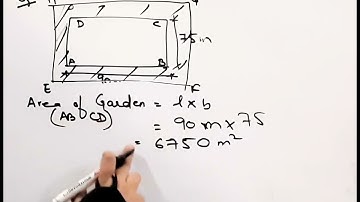 D C
75 m
A B
E F
90
Area of Garden = l x b
(ABCD)
= 90 m x 75
= 6750 m²